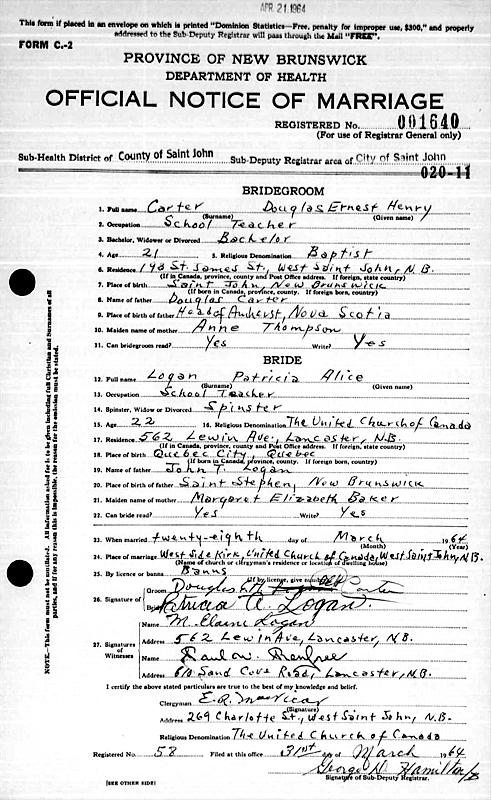 APR 21 1964
This form if placed in an envelope on which is printed "Dominion Statistics—Free, penalty for improper use, $300," and properly
addressed to the Sub-Deputy Registrar will pass through the Mail "FREE".
FORM C.-2
PROVINCE OF NEW BRUNSWICK
DEPARTMENT OF HEALTH
OFFICIAL NOTICE OF MARRIAGE
REGISTERED No. 001640
(For use of Registrar General only)
Sub-Health District of County of Saint John Sub-Deputy Registrar area of City of Saint John
020-11
BRIDEGROOM
1. Full name Carter Douglas Ernest Henry
(Surname) (Given name)
2. Occupation School Teacher
3. Bachelor, Widower or Divorced Bachelor
4. Age 21 5. Religious Denomination Baptist
6. Residence St. James St., West Saint John, N.B.
(If in Canada, province, county and Post Office address. If foreign, state country)
7. Place of birth Saint John, New Brunswick
(If born in Canada, province, county. If foreign born, country)
8. Name of father Douglas Carter
9. Place of birth of father Head of Amherst, Nova Scotia
10. Maiden name of mother Anne Thompson
11. Can bridegroom read? Yes Write? Yes
BRIDE
12. Full name Logan Patricia Alice
(Surname) (Given name)
13. Occupation School Teacher
14. Spinster, Widow or Divorced Spinster
15. Age 22 16. Religious Denomination The United Church of Canada
17. Residence 562 Lewin Ave., Lancaster, N.B.
(If in Canada, province, county and Post Office address. If foreign, state country)
18. Place of birth Quebec City, Quebec
(If born in Canada, province, county. If foreign born, country)
19. Name of father John T. Logan
20. Place of birth of father Saint Stephen, New Brunswick
21. Maiden name of mother Margaret Elizabeth Baker
22. Can bride read? Yes Write? Yes
23. When married twenty-eighth day of March 1964
(Month) (Year)
24. Place of marriage West Side Kirk, United Church of Canada, West Saint John, N.B.
(Name of church or clergyman's residence or location of dwelling house)
25. By licence or banns Banns
(If by license, give number)
26. Signature of Groom Douglas Carter
Bride Patricia A. Logan
Name M. Elaine Logan
Address 562 Lewin Ave, Lancaster, N.B.
27. Signatures of Witnesses
Name Renfree
Address 610 Sand Cove Road, Lancaster, N.B.
I certify the above stated particulars are true to the best of my knowledge and belief.
Clergyman E.R. MacVicar
(Signature)
Address 269 Charlotte St., West Saint John, N.B.
Religious Denomination The United Church of Canada
Registered No. 58 Filed at this office 31st day of March 1964
George H. Hamilton
Signature of Sub-Deputy Registrar.
[SEE OTHER SIDE]
NOTE—This form must not be mutilated. All information asked for is to be given including full Christian and Surnames of all
parties, and if for any reason this is impossible, the reason for the omission must be stated.